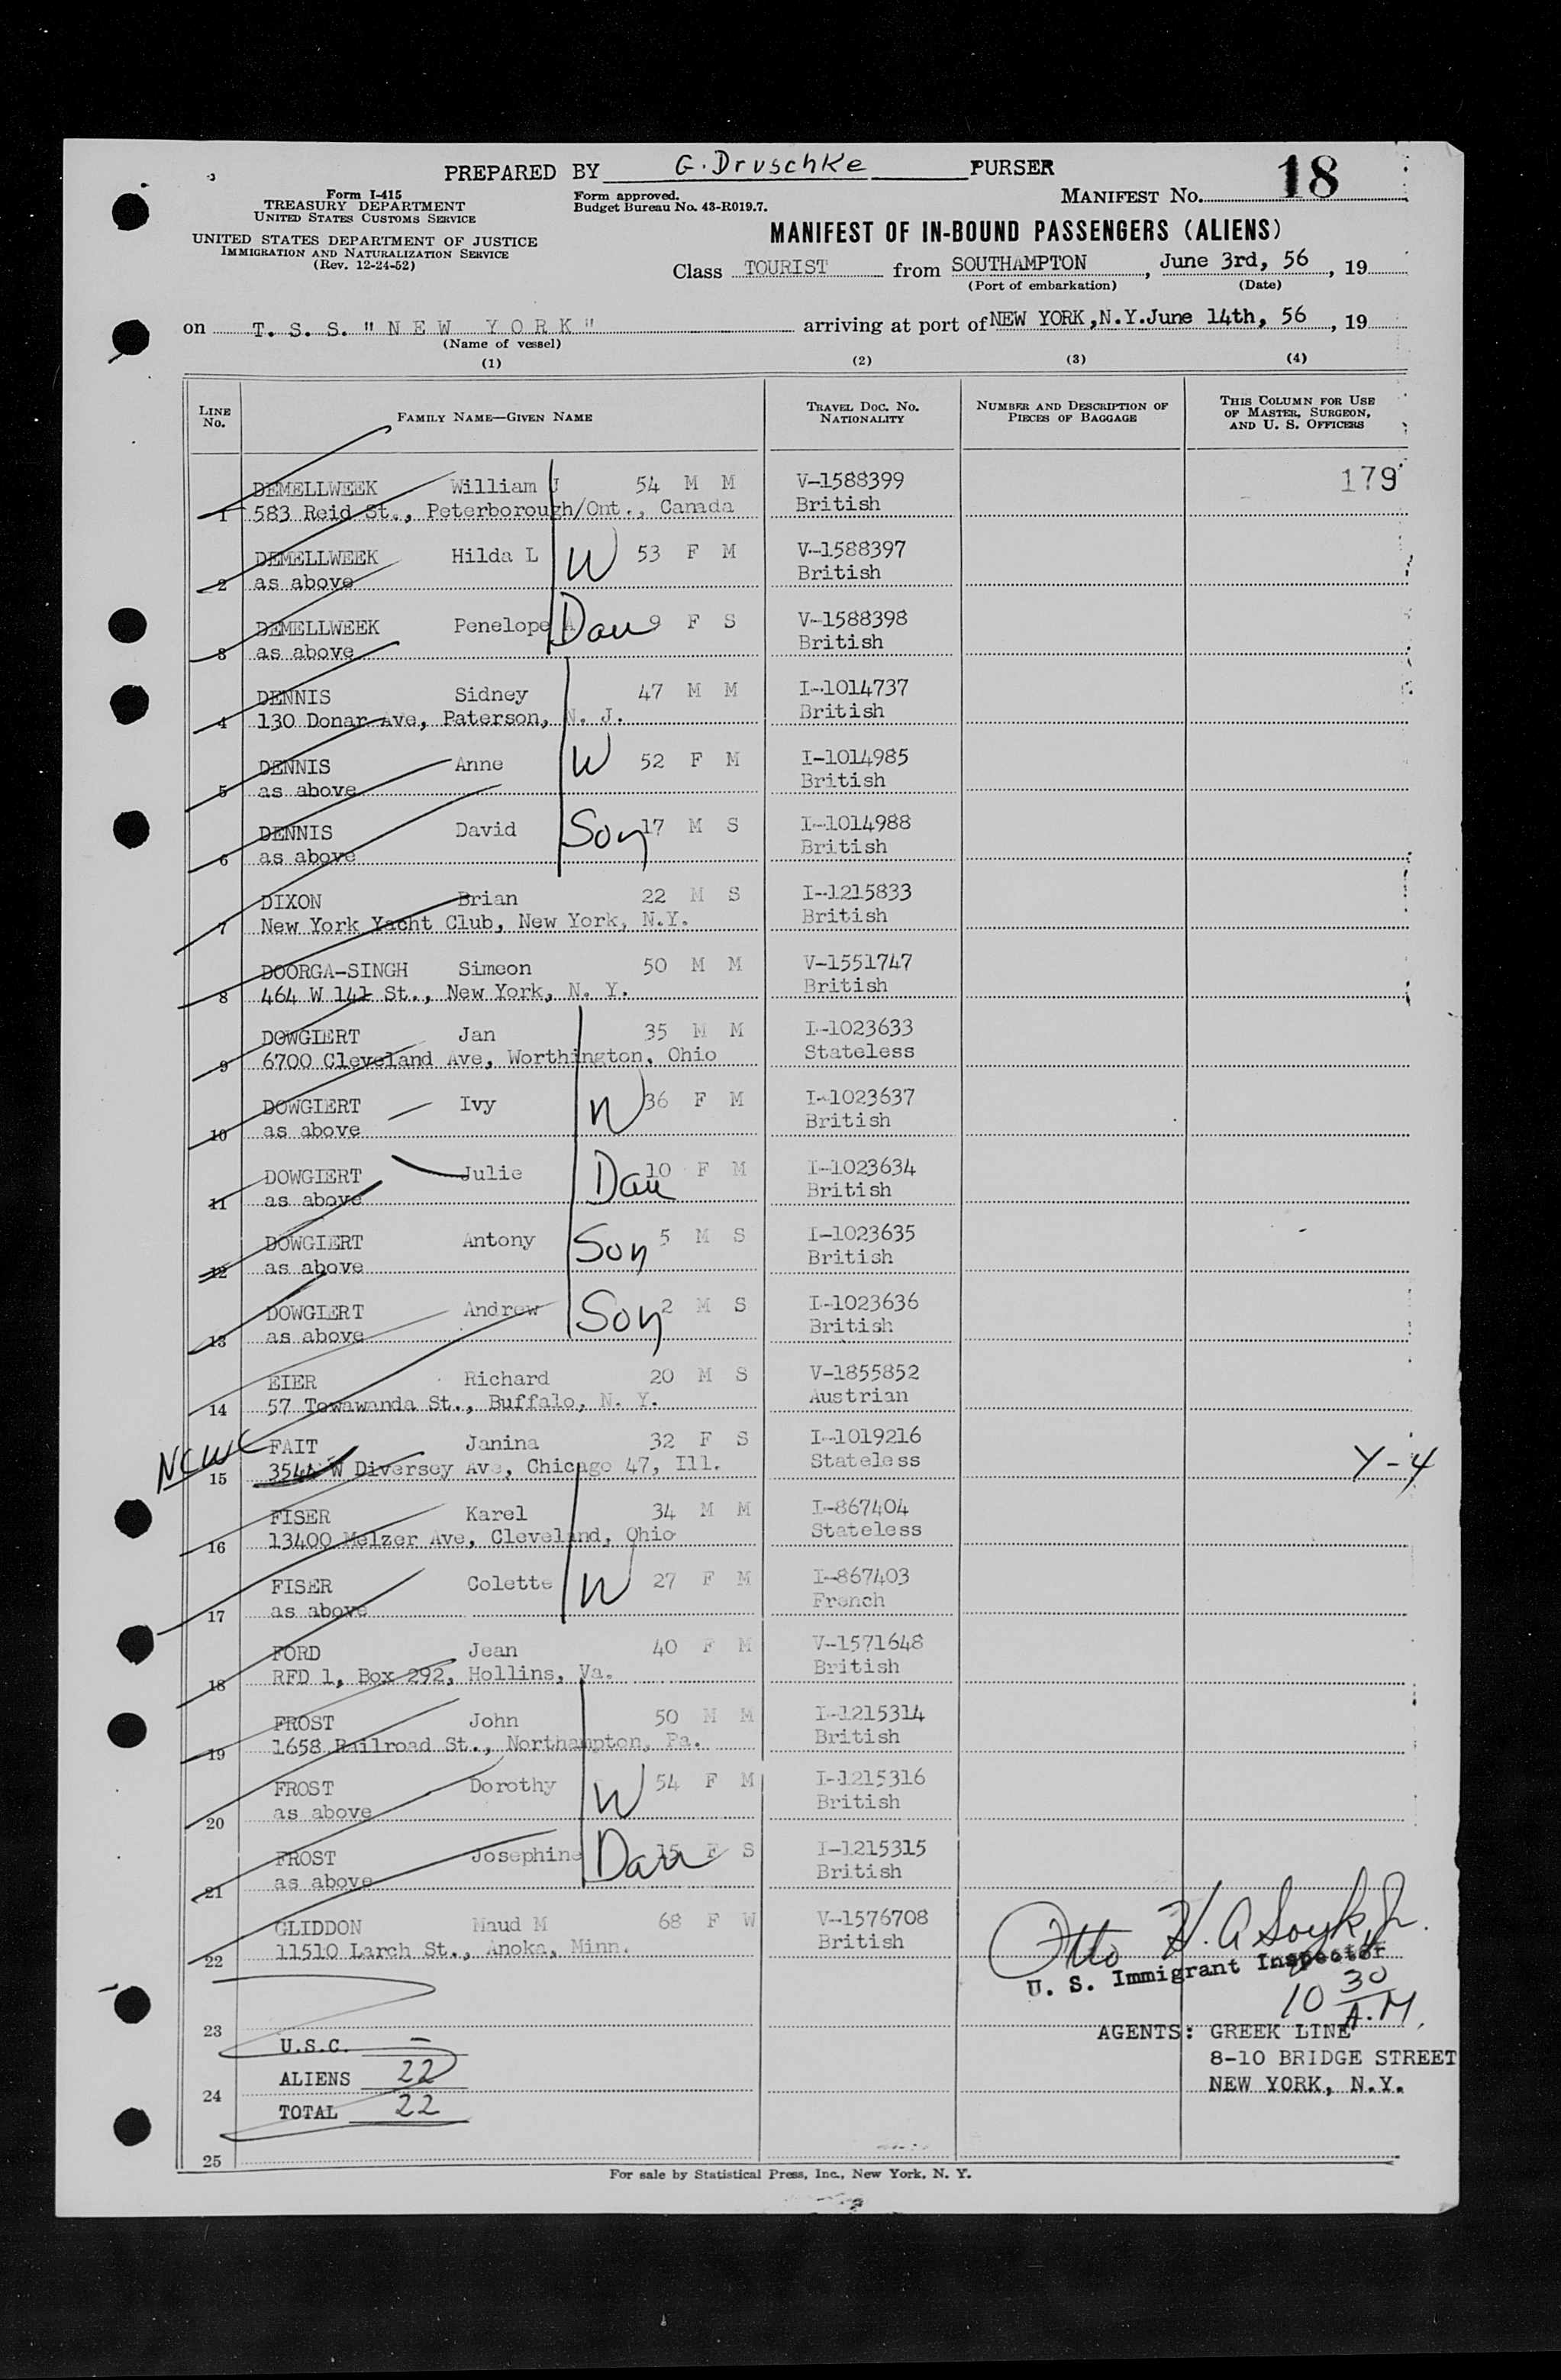 PREPARED BY G. Druschke PURSER
Form I-415
TREASURY DEPARTMENT
UNITED STATES CUSTOMS SERVICE
Form approved.
Budget Bureau No. 43-R019.7.
MANIFEST No. 18
UNITED STATES DEPARTMENT OF JUSTICE
IMMIGRATION AND NATURALIZATION SERVICE
(Rev. 12-24-52)
MANIFEST OF IN-BOUND PASSENGERS (ALIENS)
Class TOURIST from SOUTHAMPTON, June 3rd, 56, 19
(Port of embarkation) (Date)
on T. S. S. "NEW YORK" arriving at port of NEW YORK, N.Y. June 14th, 56, 19
(Name of vessel)
(1) (2) (3) (4)
LINE No. FAMILY NAME—GIVEN NAME TRAVEL DOC. No. NATIONALITY NUMBER AND DESCRIPTION OF PIECES OF BAGGAGE THIS COLUMN FOR USE OF MASTER, SURGEON, AND U. S. OFFICERS
DEMELLWEEK William J 54 M M V-1588399 179
1 583 Reid St., Peterborough/Ont., Canada British
DEMELLWEEK Hilda L W 53 F M V-1588397
2 as above British
DEMELLWEEK Penelope Dau 9 F S V-1588398
3 as above British
DENNIS Sidney 47 M M I-1014737
4 130 Donar Ave, Paterson, N. J. British
DENNIS Anne W 52 F M I-1014985
5 as above British
DENNIS David Son 17 M S I-1014988
6 as above British
DIXON Brian 22 M S I-1215833
7 New York Yacht Club, New York, N.Y. British
DOORGA-SINGH Simeon 50 M M V-1551747
8 464 W 141 St., New York, N. Y. British
DOWGIERT Jan 35 M M I-1023633
9 6700 Cleveland Ave, Worthington, Ohio Stateless
DOWGIERT Ivy W 36 F M I-1023637
10 as above British
DOWGIERT Julie Dau 10 F M I-1023634
11 as above British
DOWGIERT Antony Son 5 M S I-1023635
12 as above British
DOWGIERT Andrew Son 2 M S I-1023636
13 as above British
EIER Richard 20 M S V-1855852
14 57 Towawanda St., Buffalo, N. Y. Austrian
NCWC FAIT Janina 32 F S I-1019216
15 3544 W Diversey Ave, Chicago 47, Ill. Stateless Y-4
FISER Karel 34 M M I-867404
16 13400 Melzer Ave, Cleveland, Ohio Stateless
FISER Colette W 27 F M I-867403
17 as above French
FORD Jean 40 F M V-1571648
18 RFD 1, Box 292, Hollins, Va. British
FROST John 50 M M I-1215314
19 1658 Railroad St., Northampton, Pa. British
FROST Dorothy W 54 F M I-1215316
20 as above British
FROST Josephine Dau 15 F S I-1215315
21 as above British
GLIDDON Maud M 68 F W V-1576708
22 11510 Larch St., Anoka, Minn. British
Otto H. A
U. S. Immigrant Inspector
10 30 A.M.
23
U.S.C. –
AGENTS: GREEK LINE
8-10 BRIDGE STREET
ALIENS 22
NEW YORK, N.Y.
24
TOTAL 22
25
For sale by Statistical Press, Inc., New York, N. Y.